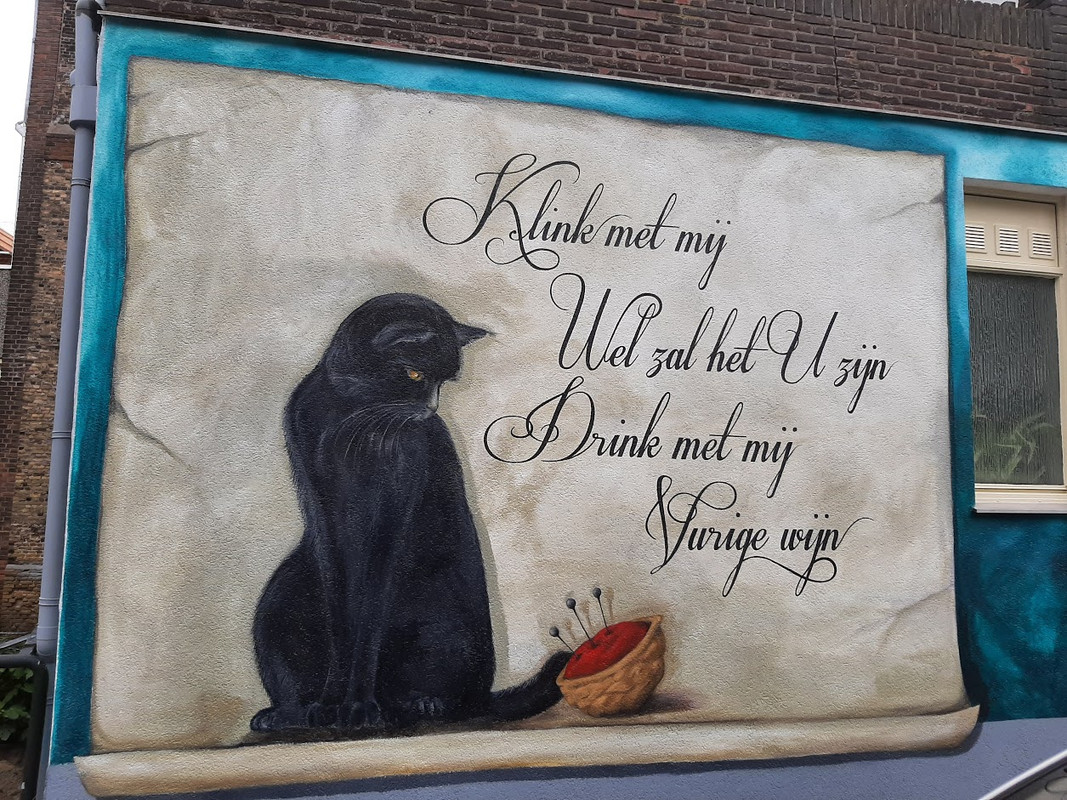 Klink met mij
Wel zal het U zijn
Drink met mij
Vurige wijn